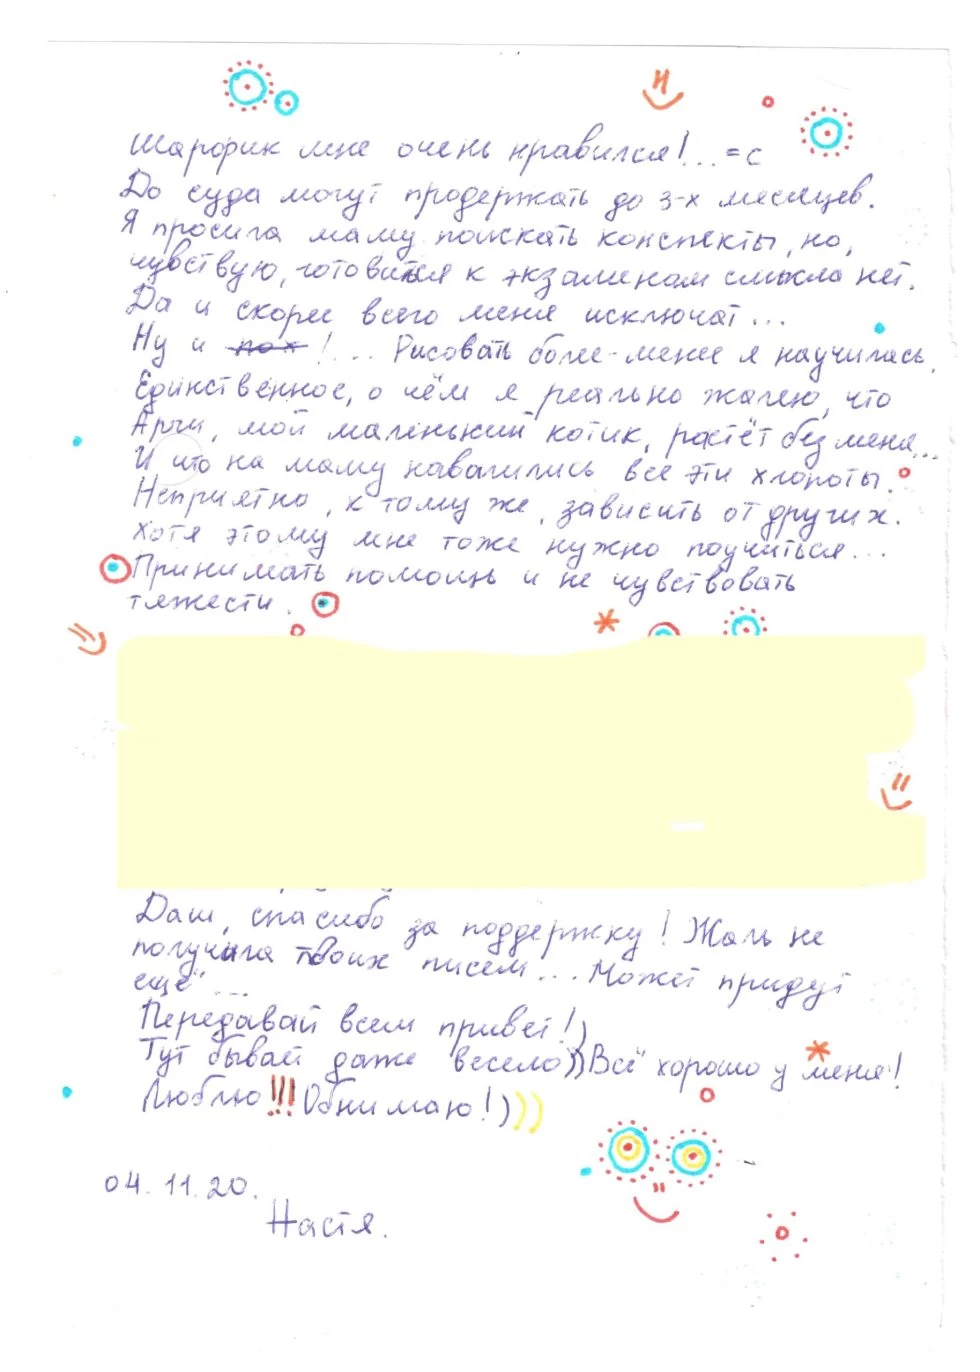 Шарфик мне очень нравился!... =с
До суда могут продержать до 3-х месяцев.
Я просила маму поискать конспекты, но,
чувствую, готовиться к экзаменам смысла нет.
Да и скорее всего меня исключат...
Ну и пох!... Рисовать более-менее я научилась.
Единственное, о чём я реально жалею, что
Арчи, мой маленький котик, растёт без меня...
И что на маму навалились все эти хлопоты.
Неприятно, к тому же, зависить от других.
Хотя этому мне тоже нужно поучиться...
Принимать помощь и не чувствовать
тяжести.
Даш, спасибо за поддержку! Жаль не
получила твоих писем... Может придут
ещё...
Передавай всем привет!)
Тут бывает даже весело)) Всё хорошо у меня!
Люблю!!! Обнимаю!)))
04.11.20.
Настя.